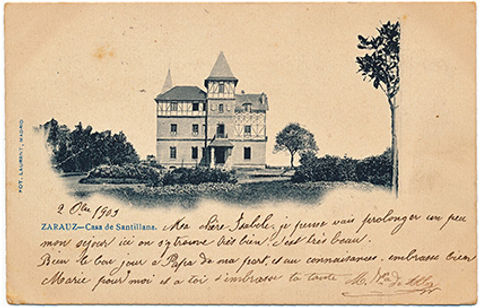 FOT. LAURENT, MADRID
2 Obre 1903
ZARAUZ—Casa de Santillana.
Ma chère Isabele, je pense vais prolonger un peu
mon sejour ici on s'y trouve très bien, c'est très beau.
Bien le bon jour a Papa de ma part, et au connaissances, embrasse bien
Marie pour moi et a toi d'embrasse la tante M.